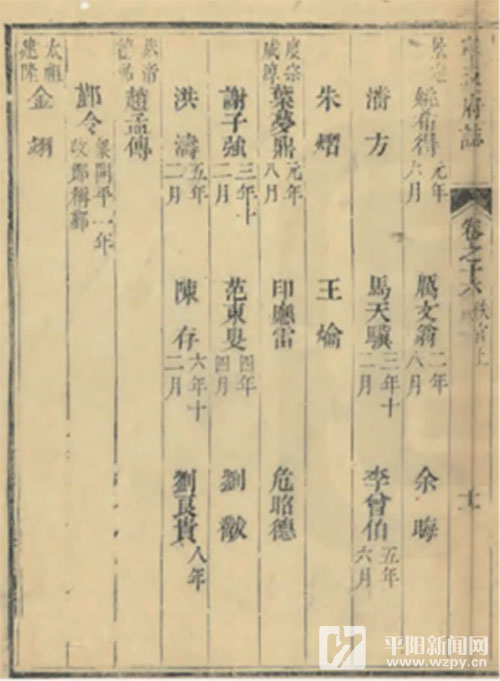 府誌 卷之十六 秩官上 十一
姚希得 元年六月 厲文翁 二年八月 余晦
潘方 馬天驥 三年十二月 李曾伯 五年六月
朱熠 王爚
度宗咸淳 葉夢鼎 元年八月 印應雷 危昭德
謝子強 三年十二月 范東叟 四年四月 劉黻
洪濤 五年二月 陳存 六年十二月 劉良貴 八年
德祐 趙孟傳
鄞令 梁開平一年改鄮稱鄞
太祖建隆 金翊
平阳新闻网
www.wzpy.cn